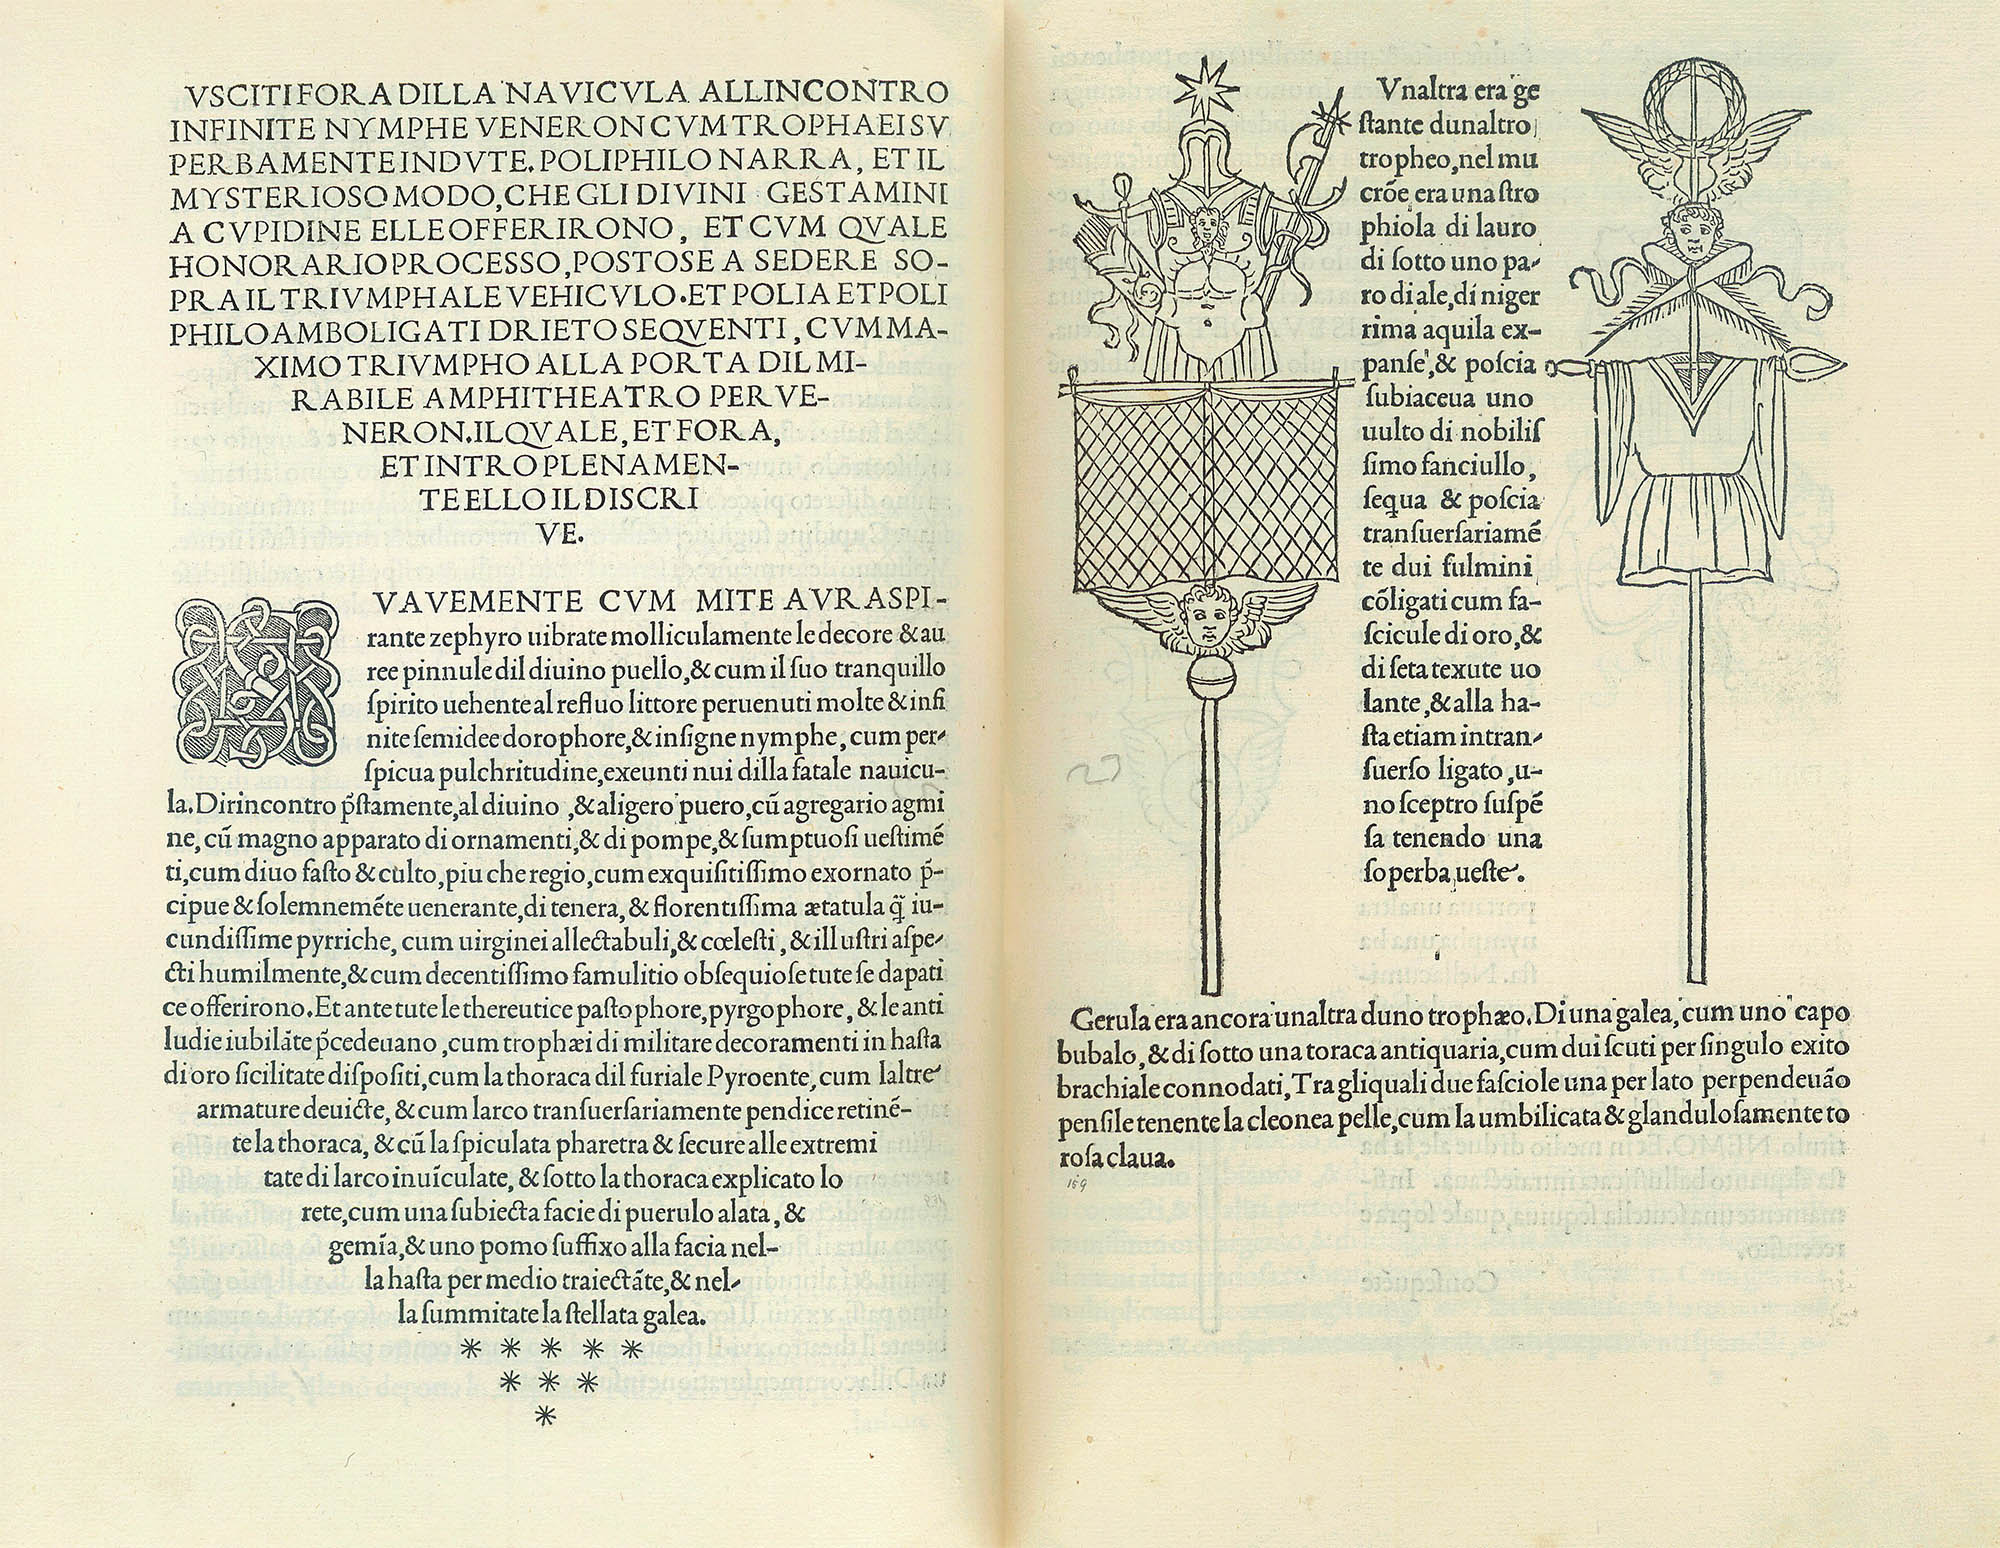 VSCITI FORA DILLA NAVICVLA ALLINCONTRO
INFINITE NYMPHE VENERON CVM TROPHAEI SV
PERBAMENTE INDVTE. POLIPHILO NARRA, ET IL
MYSTERIOSO MODO, CHE GLI DIVINI GESTAMINI
A CVPIDINE ELLE OFFERIRONO, ET CVM QVALE
HONORARIO PROCESSO, POSTOSE A SEDERE SO-
PRA IL TRIVMPHALE VEHICVLO. ET POLIA ET POLI
PHILO AMBO LIGATI DRIETO SEQVENTI, CVM MA-
XIMO TRIVMPHO ALLA PORTA DIL MI-
RABILE AMPHITHEATRO PERVE-
NERON. IL QVALE, ET FORA,
ET INTRO PLENAMEN-
TE ELLO IL DISCRI
VE.
VAVEMENTE CVM MITE AVRA SPI-
rante zephyro uibrate molliculamente le decore & au
ree pinnule dil diuino puello, & cum il ſuo tranquillo
ſpirito uehente al refluo littore peruenuti molte & infi
nite ſemidee dorophore, & inſigne nymphe, cum per-
ſpicua pulchritudine, exeunti nui dilla fatale nauicu-
la. Dirincontro p̄ſtamente, al diuino, & aligero puero, cū agregario agmi
ne, cū magno apparato di ornamenti, & di pompe, & ſumptuoſi ueſtimē
ti, cum diuo faſto & culto, piu che regio, cum exquiſitiſſimo exornato p̄-
cipue & ſolemnemēte uenerante, di tenera, & florentiſſima ætatula q̄ iu-
cundiſſime pyrriche, cum uirginei allectabuli, & cœleſti, & illuſtri aſpe-
cti humilmente, & cum decentiſſimo famulitio obſequioſe tute ſe dapati
ce offerirono. Et ante tute le thereutice paſtophore, pyrgophore, & le anti
ludie iubilāte p̄cedeuano, cum trophæi di militare decoramenti in haſta
di oro ſicilitate diſpoſiti, cum la thoraca dil furiale Pyroente, cum laltre
armature deuicte, & cum larco tranſuerſariamente pendice retinē-
te la thoraca, & cū la ſpiculata pharetra & ſecure alle extremi
tate di larco inuīculate, & ſotto la thoraca explicato lo
rete, cum una ſubiecta facie di puerulo alata, &
gemīa, & uno pomo ſuffixo alla facia nel-
la haſta per medio traiectāte, & nel-
la ſummitate la ſtellata galea.
* * * * *
* * *
*
Vnaltra era ge
ſtante dunaltro
tropheo, nel mu
crōe era una ſtro
phiola di lauro
di ſotto uno pa-
ro di ale, di niger
rima aquila ex-
panſe, & poſcia
ſubiaceua uno
uulto di nobiliſ
ſimo fanciullo,
ſequa & poſcia
tranſuerſariamē
te dui fulmini
cōligati cum fa-
ſcicule di oro, &
di ſeta texute uo
lante, & alla ha-
ſta etiam intran-
ſuerſo ligato, u-
no ſceptro ſuſpē
ſa tenendo una
ſoperba ueſte.
Gerula era ancora unaltra duno trophæo. Di una galea, cum uno capo
bubalo, & di ſotto una toraca antiquaria, cum dui ſcuti per ſingulo exito
brachiale connodati, Tra gli quali due faſciole una per lato perpendeuāo
penſile tenente la cleonea pelle, cum la umbilicata & glanduloſamente to
roſa claua.
159